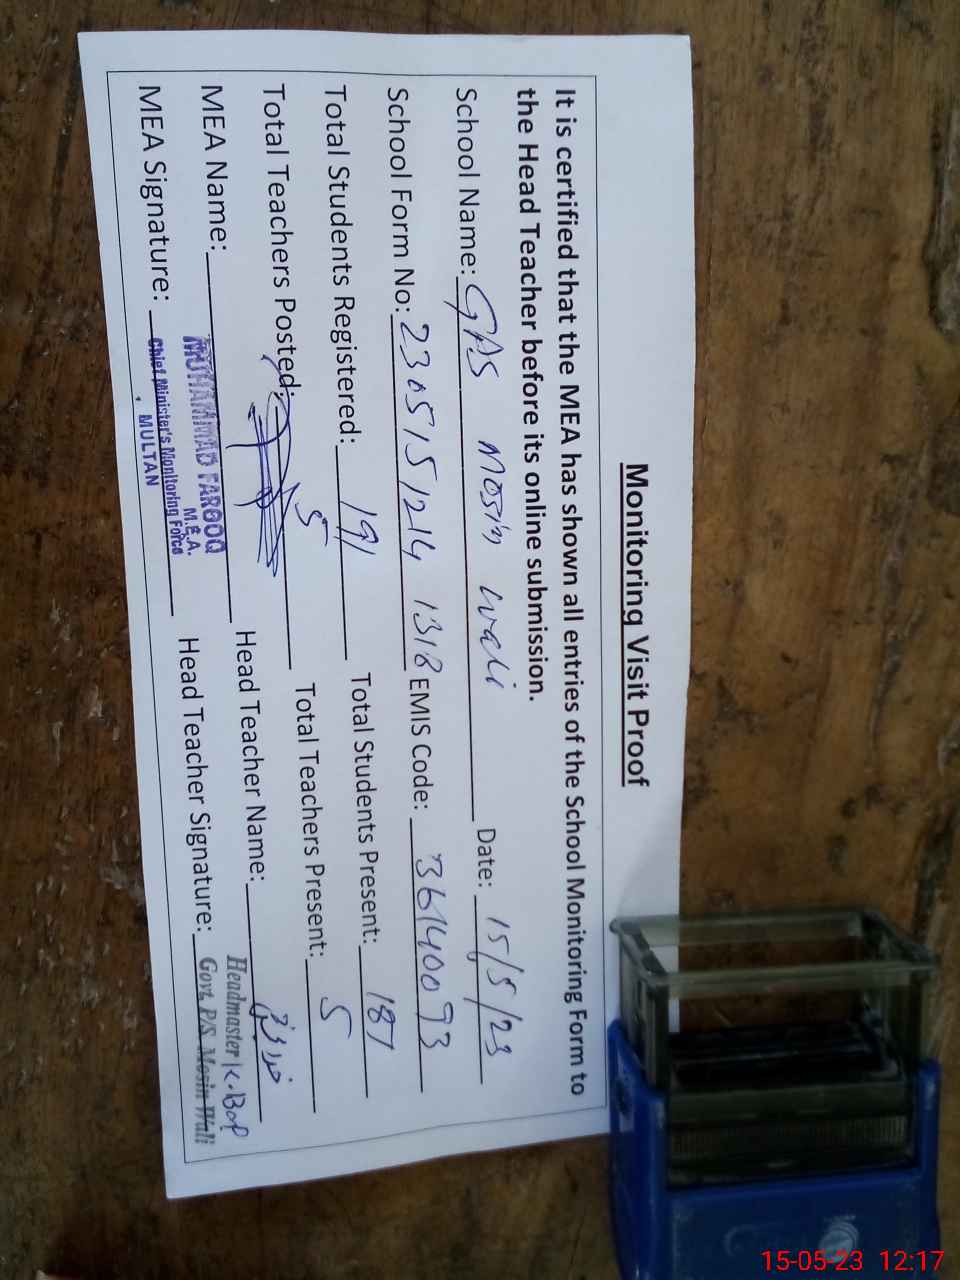 Monitoring Visit Proof
It is certified that the MEA has shown all entries of the School Monitoring Form to
the Head Teacher before its online submission.
School Name: GPS Mosin Wali Date: 15/5/23
School Form No: 23051512141318 EMIS Code: 36140093
Total Students Registered: 191 Total Students Present: 187
Total Teachers Posted: 5 Total Teachers Present: 5
MEA Name: MUHAMMAD FAROOQ Head Teacher Name:
M.E.A.
MEA Signature: Chief Minister's Monitoring Force Head Teacher Signature: Headmaster K.Bop
MULTAN Govt. P/S. Mosin Wali
15-05-23 12:17